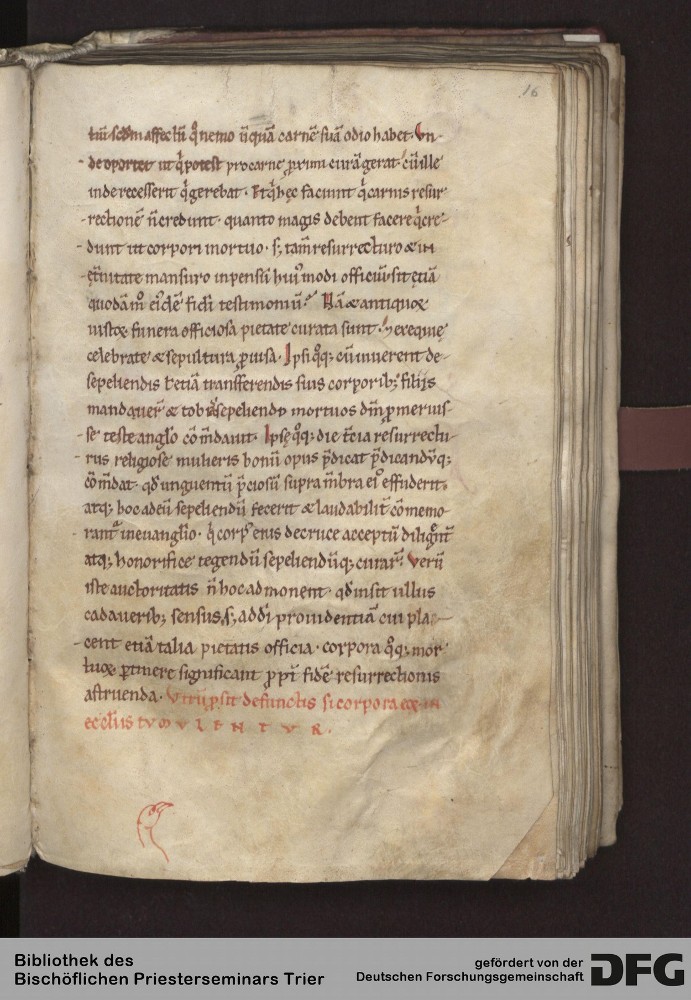 16
tiū scdm affectū q°nemo ūquā carnē suā odio habet. Vn-
de oportet ut q̄ potest pro carne ꝓximi curā gerat. cū ille
inde recesserit q̄ gerebat. Et q̄ hęc faciunt q̄ carnis resur-
rectionē n̄ credunt. quanto magis debent facere q̄ cre-
dunt ut corpori mortuo. s; tam̄ resurrecturo & in
ęt̄nitate mansuro inpensū hui' modi officiū sit etiā
quodā m° ei'dē fidi testimoniū. Nā & antiquoꝝ
iustoꝝ funera officiosa pietate curata sunt. & exequię
celebratę & sepultura ꝓuisa. Ipsi q°q; cū uiuerent de-
sepeliendis t etiā transferendis suis corporib; filiis
mandauer̄ & tobias sepeliendo mortuos dm̄ ꝓmeruis-
se teste anglo cōmdauit. Ipse q°q; die t̄cia resurrectu-
rus religiose mulieris bonū opus p̄dicat p̄dicandūq;
cōmdat. qđ unguentū p̄ciosū supra mbra ei' effuderit.
atq; hoc ad eū sepeliendū fecerit & laudabilit̄ cōmemo-
rant̄ in euanglio. q̄ corp' eius de cruce acceptū diligent̄
atq; honorifice tegendū sepeliendūq; curar̄. Verū
iste auctoritatis n̄ hoc admonent. qđ insit ullus
cadauerib; sensus. s; ad dī prouidentiā cui pla-
cent etiā talia pietatis officia. corpora q°q; mor-
tuoꝝ ꝑtinere significant ꝓpt̄ fidē resurrectionis
astruenda. Vtrū ꝓsit defunctis si corpora eoꝝ in
eccliis TVMVLENTVR.
Bibliothek des
Bischöflichen Priesterseminars Trier
gefördert von der
Deutschen Forschungsgemeinschaft
DFG